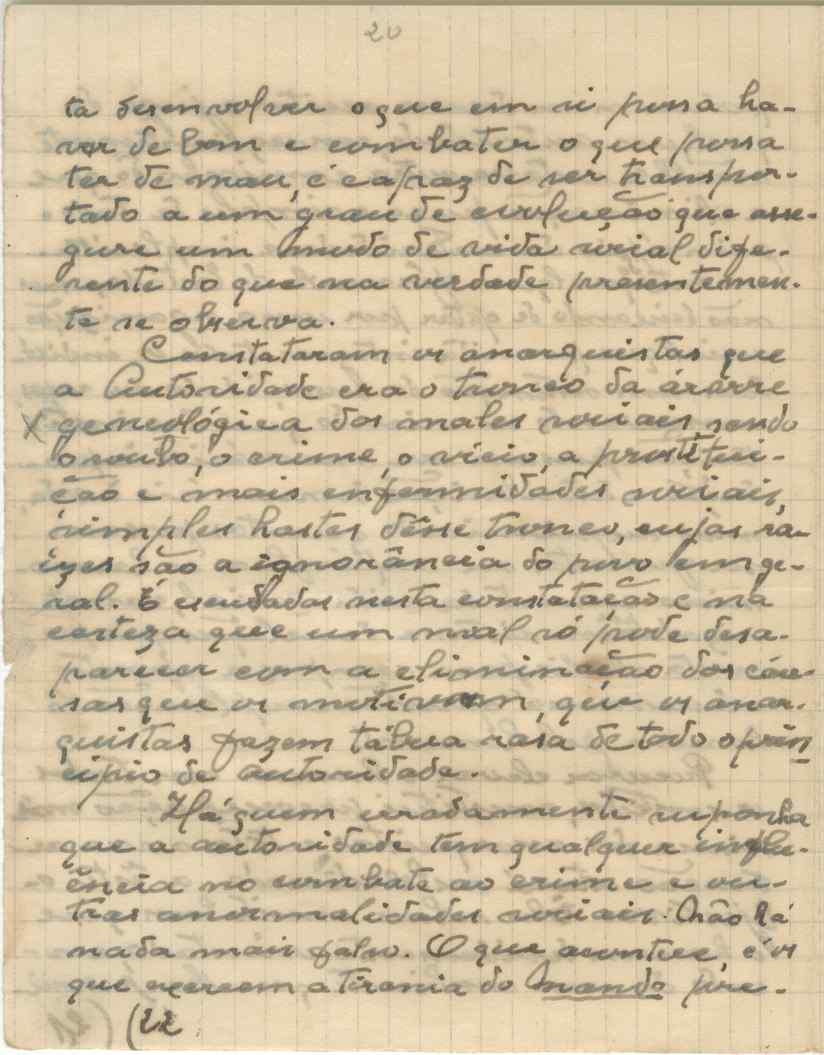 20
ta desenvolver o que em si possa ha-
ver de bom e combater o que possa
ter de mau, é capaz de ser transpor-
tado a um grau de evolução que asse-
gure um modo de vida social dife-
rente do que na verdade presentemen-
te se observa.
Constataram os anarquistas que
a Autoridade era o tronco da árvore
X geneológica dos males sociais, sendo
o roubo, o crime, o vício, a prostitui-
ção e mais enfermidades sociais,
simples hastes dêsse tronco, cujas ra-
ízes são a ignorância do povo em ge-
ral. É escudados nesta constatação e na
certeza que um mal só pode desa-
parecer com a eliminação das cau-
sas que os motivam, que os anar-
quistas fazem tábua rasa de todo o prin
cípio de autoridade.
Há quem erradamente suponha
que a autoridade tem qualquer influ-
ência no combate ao crime e ou-
tras anormalidades sociais. Não há
nada mais falso. O que acontece, é os
que exercem a tirania do Mando pre-
(22